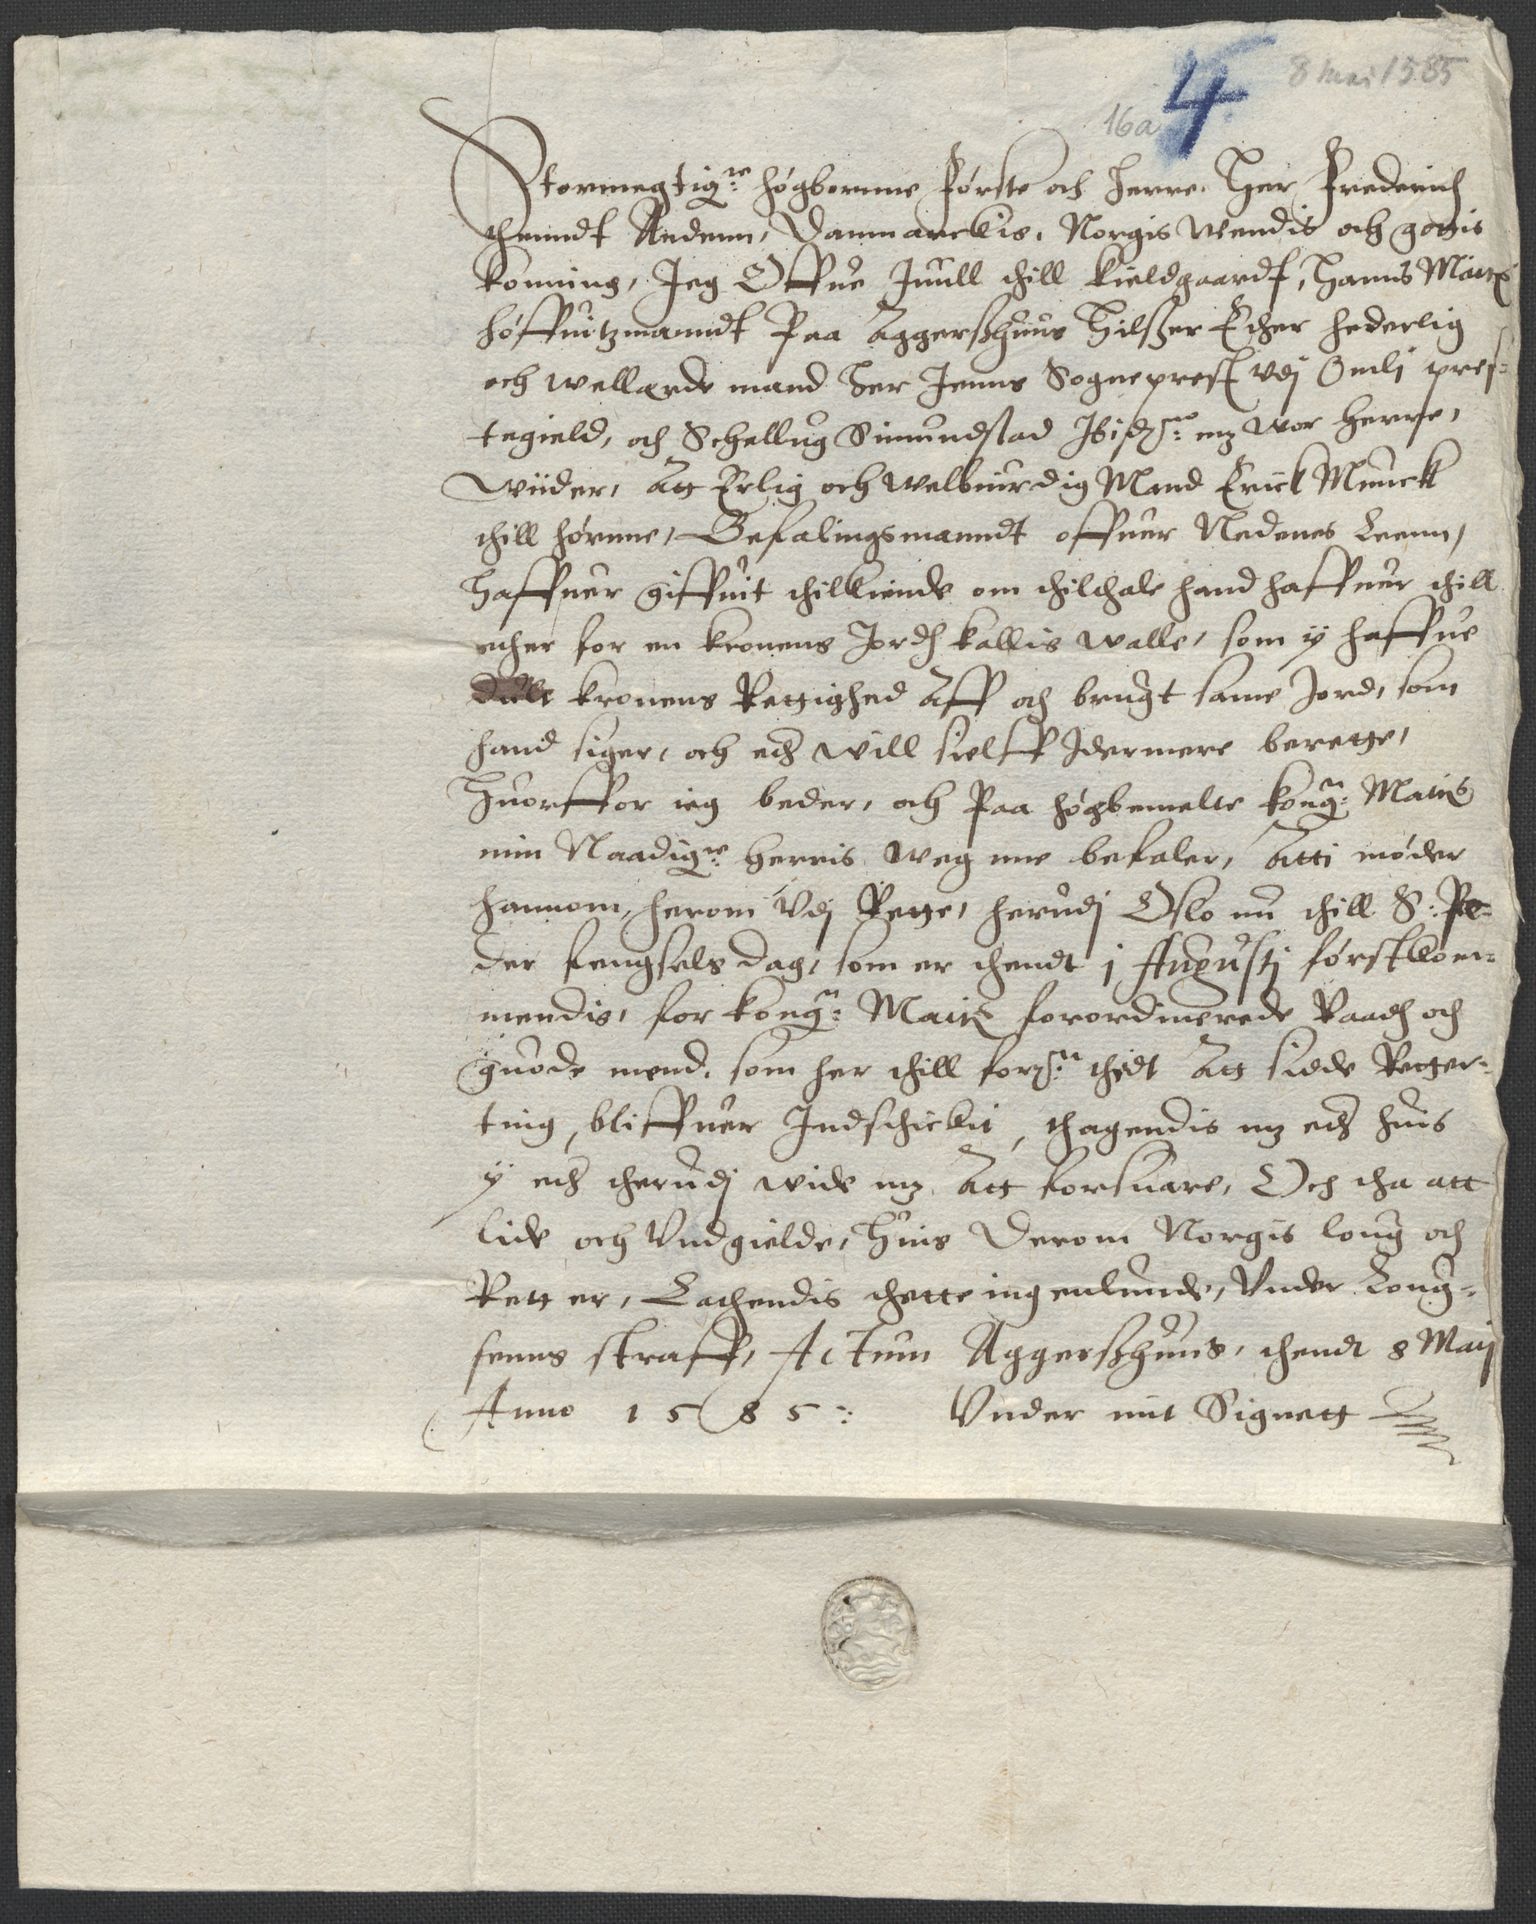 8 mai 1585
4
16a
Stormegtigste høgbornne Første och Herre, Her Frederich
thenndt Andenn, Danmarckis, Norgis Wendis och gottis
konning, Jeg Offue Juull thill Kieldgaardt, Hanns Maitz
høffuitzmanndt Paa Aggerßhuus Hilßer Ether hederlig
och wellærde mand Her Jenns Sogneprest vdj Omli pres-
tegield, och Schellug Simundstad Ibidem: mz wor Herre,
Wiider, Att Erlig och welbiurdig Mand Erick Munck
thill hiørnne, Befalingsmanndt offuer Nedenes Leenn,
Haffuer giffuit thillkiende om thilthale hand haffuer thill
ether for en kronens Jordh kallis walle, som y haffue
dult kronens Rettighed Aff och brugt same Jord, som
hand siger, och eder will sielff Idermere berette,
Huorffor ieg beder, och Paa høgbemelte kong: Maitz
min Naadigste herris wegnne befaler, Atti møder
hannom, herom Vdj Rette, herudj Oslo nu thill S: Pe-
der fengsels dag, som er thendt j Augustj førstkom-
mendis, for kong: Maitz forordinerede Raadh och
guode mend, som her thill forschreffne thidt Att sidde Retter-
ting, bliffuer Indschickit, thagendis mz eder huis
y eder therudj wide mz Att forsuare, Och tha att
lide och Vndgielde, Huis Derom Norgis loug och
Rett er, Ladhendis thette ingenlunde, Vnder Loug-
senns straff, Actum Aggerßhuus, thend 8 Maij
Anno 1585: Vnder mit Signett